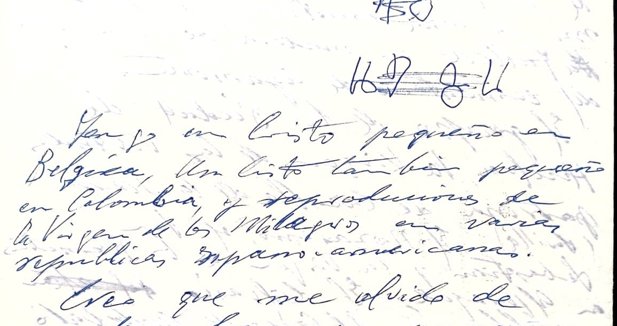 Tengo un Cristo pequeño en
Belgica, un Cristo tambien pequeño
en Colombia, y reproducciones de
la Virgen de los Milagros en varias
republicas ispano-americanas.
Creo que me olvido de